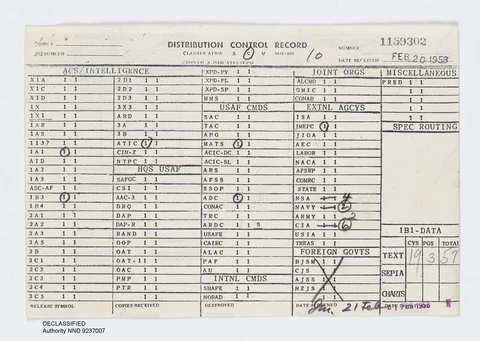 DISTRIBUTION CONTROL RECORD
SOURCE
CLASSIFICATION S C U
NUMBER 1159302
10
DATE RECEIVED FEB 20 1958
ACS/INTELLIGENCE XPD-PY 1 1 JOINT ORGS MISCELLANEOUS
X1A 1 1 2D1 1 1 XPD-PL 1 1 ALCMD 1 1 PRSD 1 1
X1C 1 1 2D2 1 1 XPD-SP 1 1 1 1
X1D 1 1 2D3 1 1 MMS 1 1 CONAD 1 1 1 1
1X 1 1 3X3 1 1 USAF CMDS EXTNL AGCYS 1 1
1X1 1 1 ARD 1 1 SAC 1 1 ISA 1 1 1 1
1AR 1 1 3A 1 1 TAC 1 1 JMEPC 1 1 SPEC ROUTING
1AS 1 1 3B 1 1 APG 1 1 JIOA 1 1
1137 1 1 ATIC 1 1 MATS 1 1 AEC 1 1
1A1 1 1 CIN-Z 1 1 ACIC-DC 1 1 LABOR 1 1
AID 1 1 NTPC 1 1 ACIC-SL 1 1 NACA 1 1
1A2 1 1 HQS USAF ARS 1 1 AFSWP 1 1
1A3 1 1 SAFGC 1 1 AFSS 1 1 COMRC 1 1
ASC-AF 1 1 CSI 1 1 SSOP 1 1 STATE 1 1
1B3 1 1 AAC-3 1 1 ADC 1 1 NSA 4
1B4 1 1 DRQ 1 1 CONAC 1 1 NAVY 2
2A1 1 1 DAP 1 1 TRC 1 1 ARMY 1 2
2A2 1 1 DAP-R 1 1 ARDC 1 1 S CIA 6
2A3 1 1 RAND 1 1 USAFE 1 1 USIA 1 1
2A5 1 1 OOP 1 1 CAIRC 1 1 TREAS 1 1 1B1-DATA
2B 1 1 OAT 1 1 ALAC 1 1 FOREIGN GOVTS CYS PGS TOTAL
2C1 1 1 OAT-1 1 1 PAF 1 1 BJSM TEXT 19 3 57
2C2 1 1 OAC 1 1 AU 1 1 CJS 1 1 SEPIA
2C3 1 1 PMP 1 1 INTNL CMDS AJSS 1 1
2C4 1 1 PTR 1 1 SHAPE 1 1 NZJS 1 1 CHARTS
2C5 1 1 NORAD 1 1
RELEASE SYMBOL COPIES RECEIVED DESTROYED
21 Feb
DECLASSIFIED
Authority NND 9237007